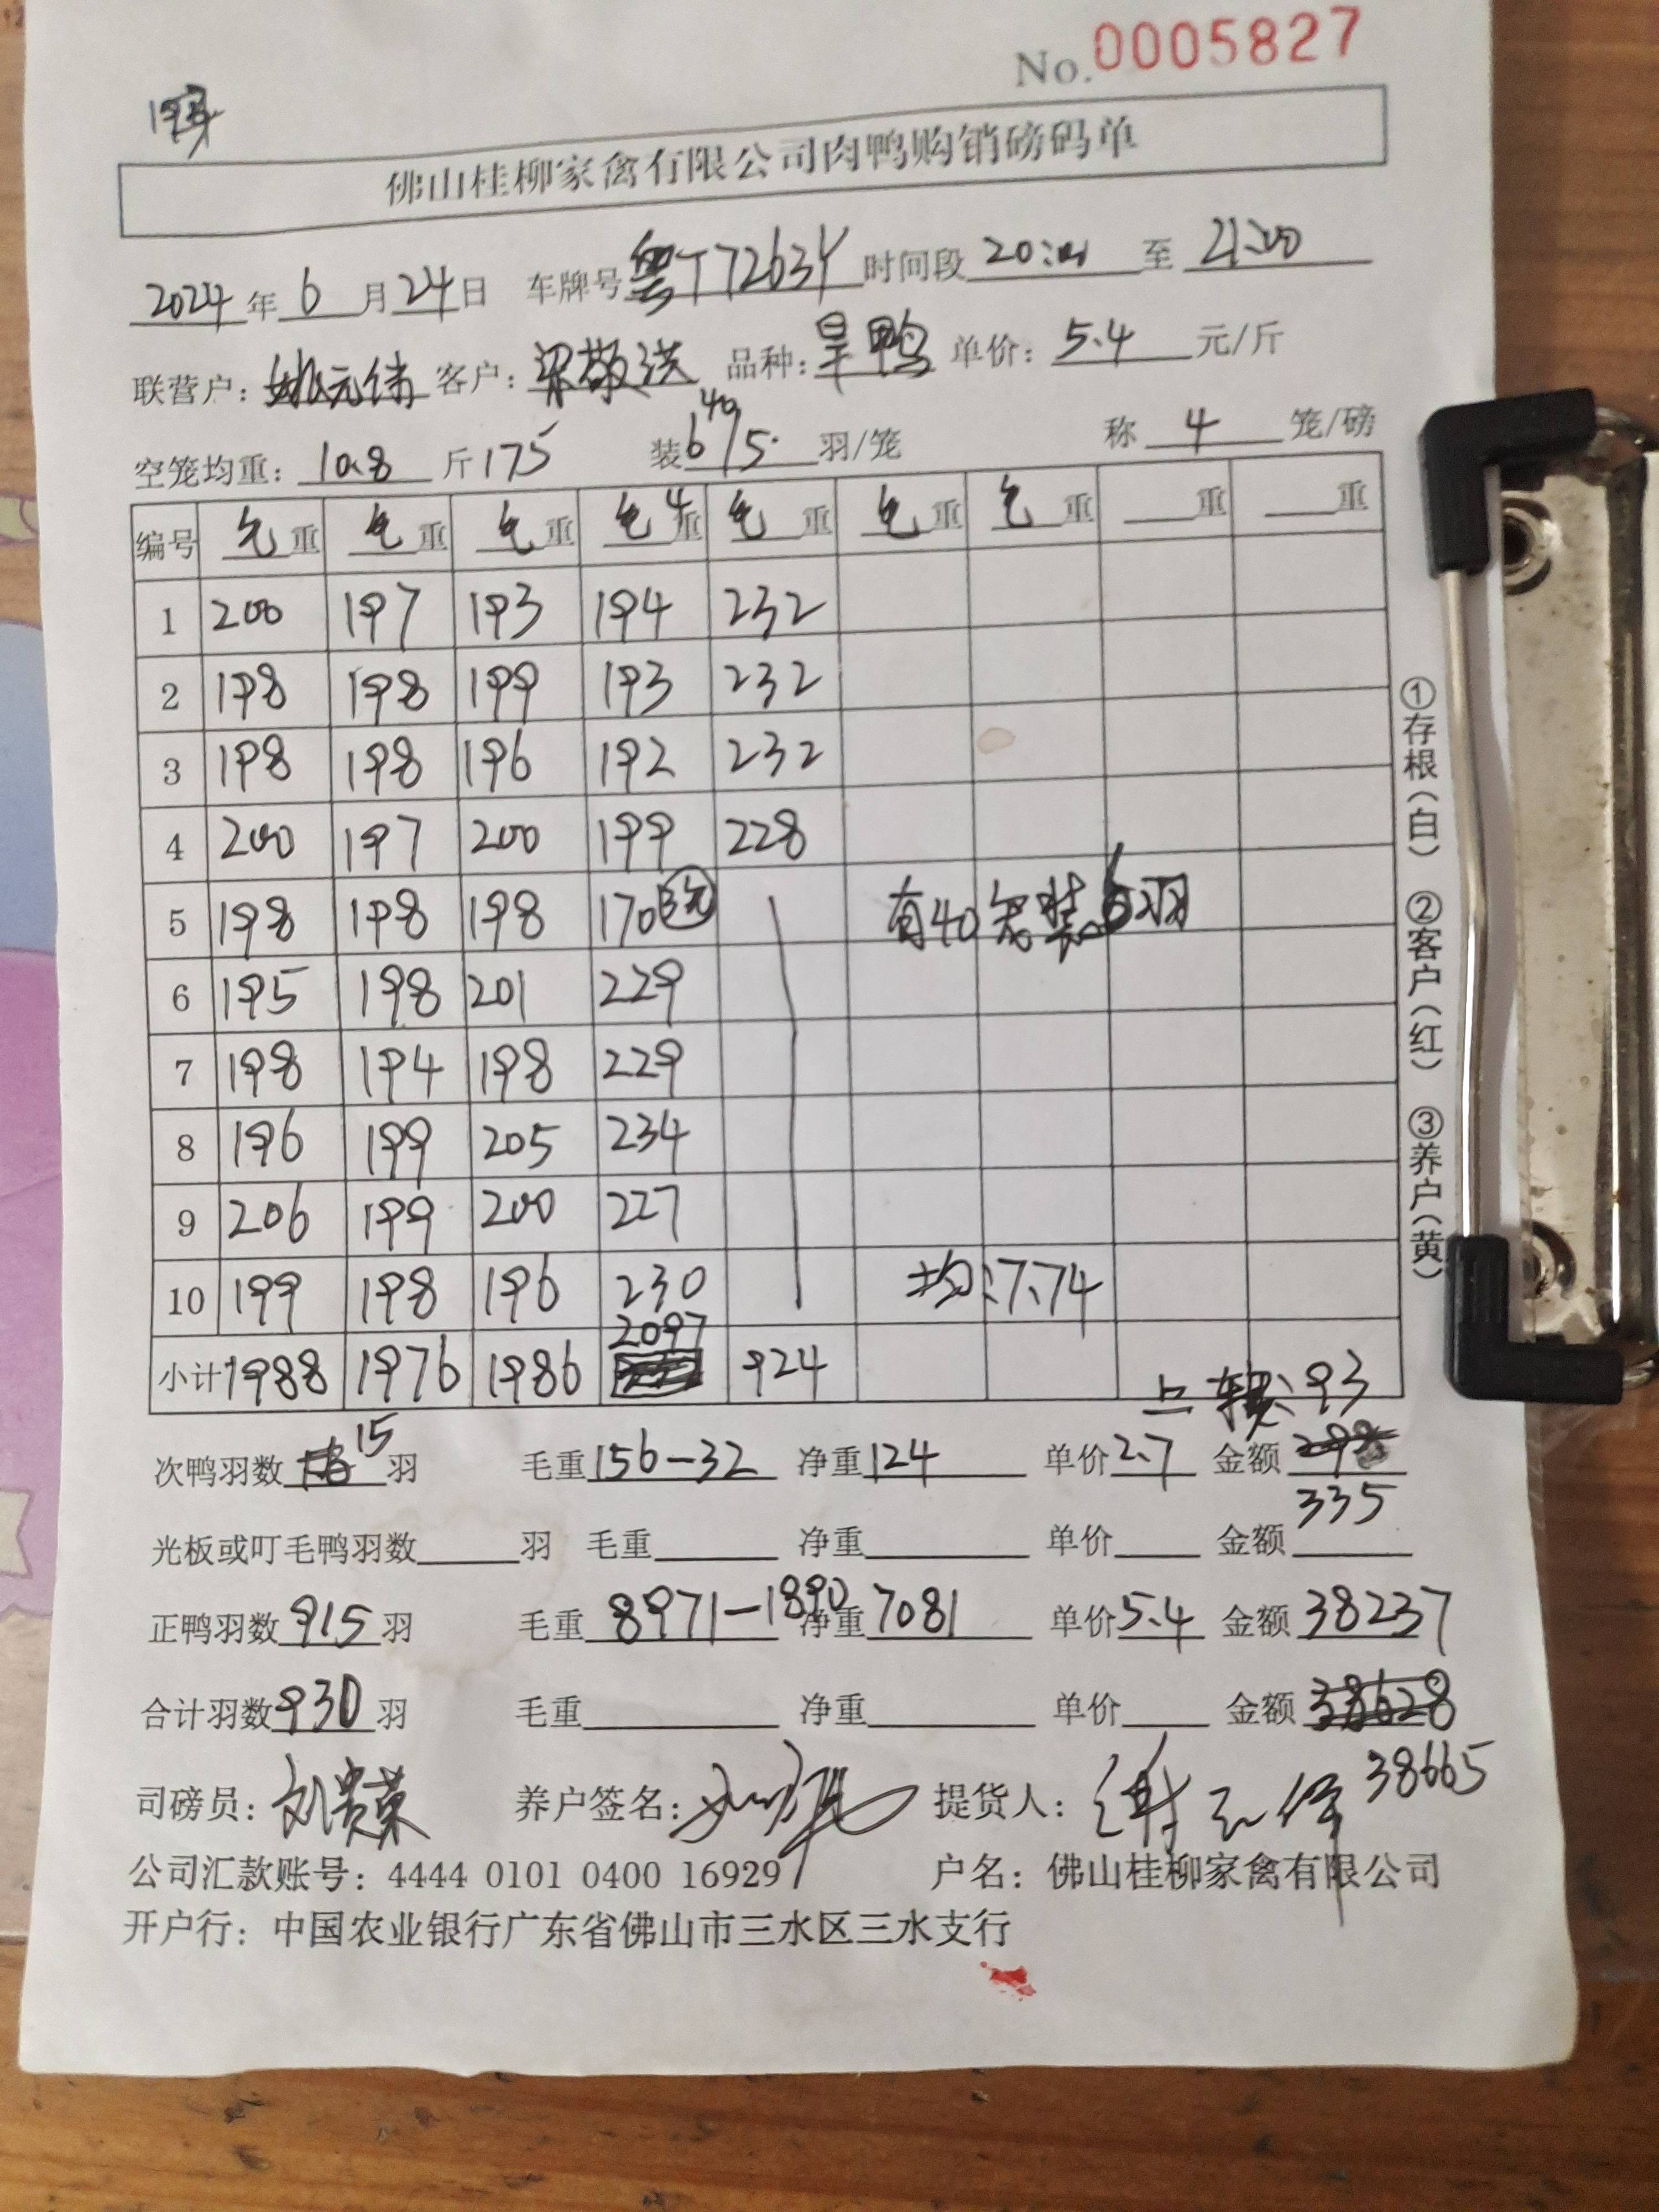 No.0005827
佛山桂柳家禽有限公司肉鸭购销磅码单
2024年6月24日 车牌号粤T7263Y 时间段20:01至21:00
联营户:姚元伟 客户:梁敬洪 品种:旱鸭 单价:5.4元/斤
空笼均重:10.8斤175 装6 40/5.羽/笼 称4笼/磅
编号 毛重 毛重 毛重 毛4重 毛重 毛重 毛重 重 重
1 200 197 193 194 232
2 198 198 199 193 232
3 198 198 196 192 232
4 200 197 200 199 228
5 198 198 198 170 有40笼装6羽
6 195 198 201 229
7 198 194 198 229
8 196 199 205 234
9 206 199 200 227
10 199 198 196 230 均:7.74
小计 1988 1976 1986 2097 924
上车:93
次鸭羽数15羽 毛重156-32 净重124 单价2.7 金额
335
光板或叮毛鸭羽数羽 毛重 净重 单价 金额
正鸭羽数915羽 毛重8971-1890 净重7081 单价5.4 金额38237
合计羽数930羽 毛重 净重 单价 金额38628
司磅员:刘贵荣 养户签名: 提货人: 38665
公司汇款账号:4444 0101 0400 16929 户名:佛山桂柳家禽有限公司
开户行:中国农业银行广东省佛山市三水区三水支行
①存根(白) ②客户(红) ③养户(黄)